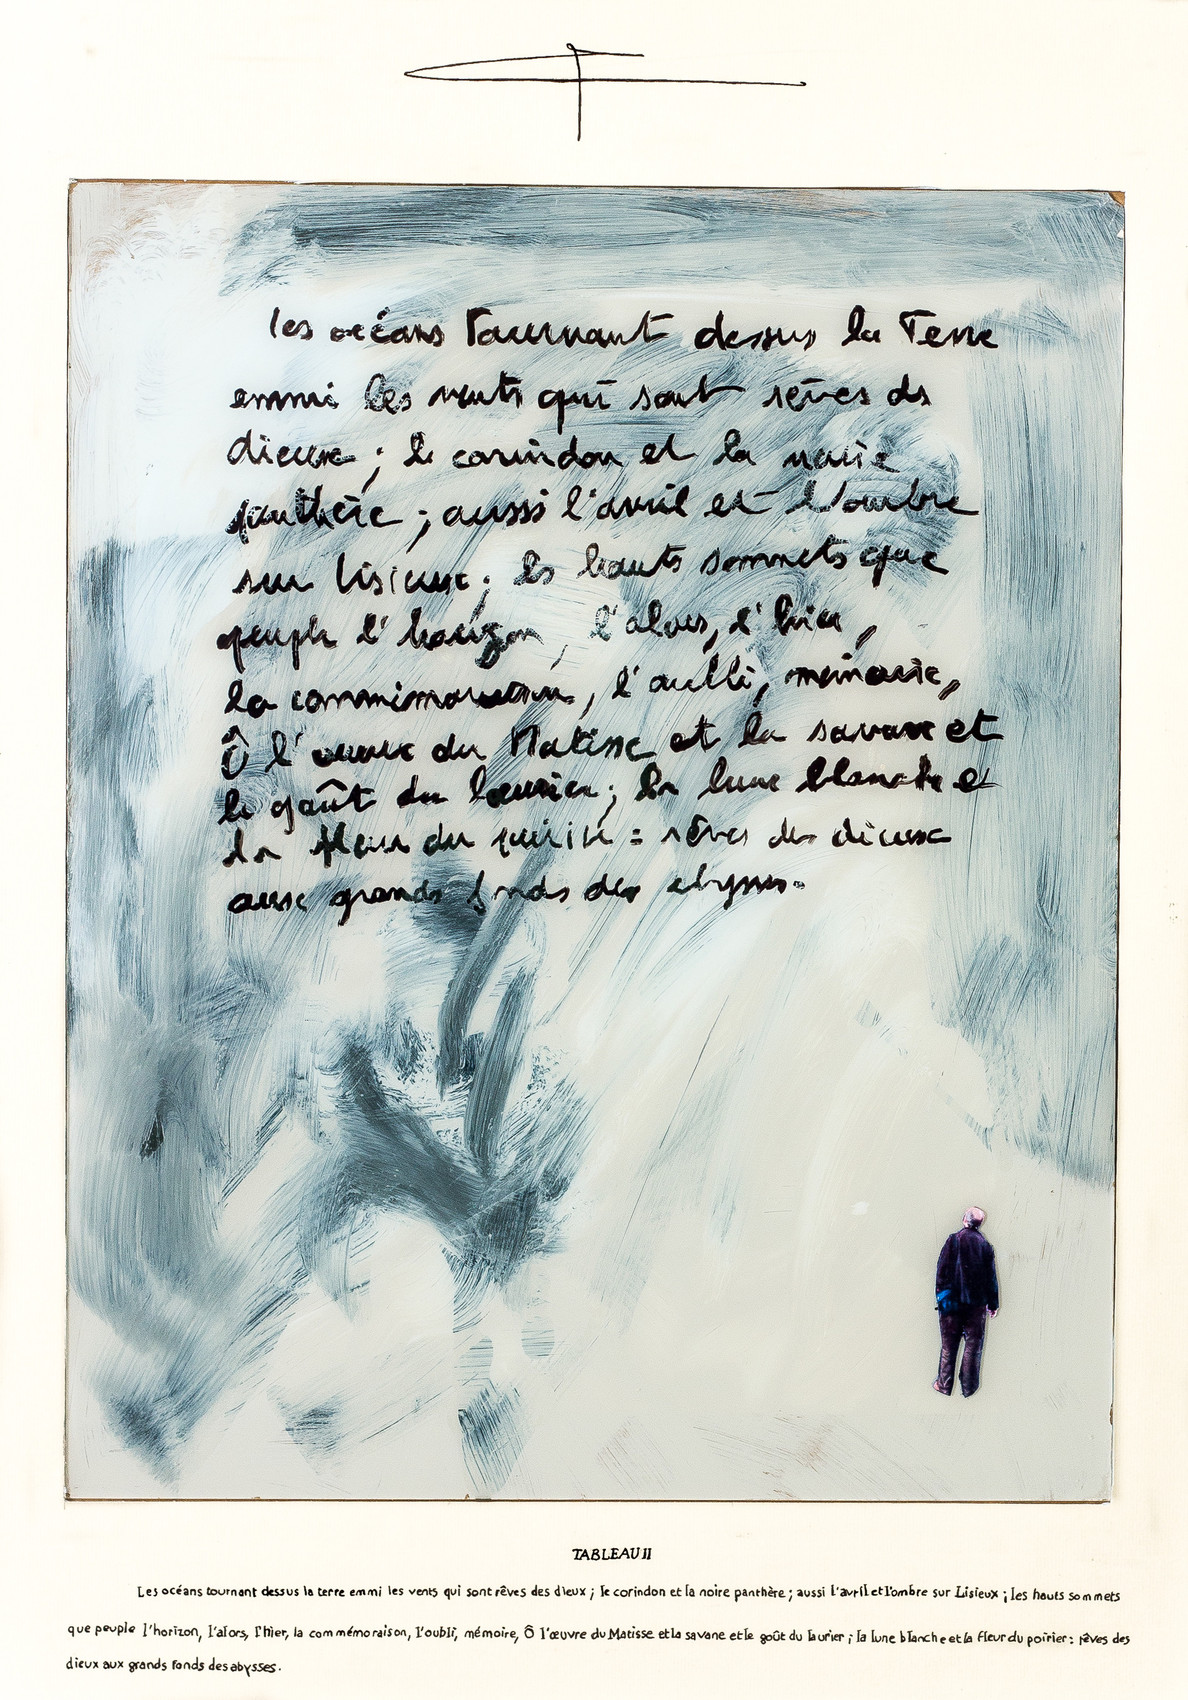 les océans tournant dessus la Terre
emmi les vents qui sont rêves des
dieux ; le corindon et la noire
panthère ; aussi l'avril et l'ombre
sur Lisieux ; les hauts sommets que
peuple l'horizon, l'alors, l'hier,
la commémoraison, l'oubli, mémoire,
Ô l'œuvre du Matisse et la savane et
le goût du laurier ; la lune blanche et
la fleur du poirier : rêves des dieux
aux grands fonds des abysses.
TABLEAU II
Les océans tournant dessus la terre emmi les vents qui sont rêves des dieux ; le corindon et la noire panthère ; aussi l'avril et l'ombre sur Lisieux ; les hauts sommets
que peuple l'horizon, l'alors, l'hier, la commémoraison, l'oubli, mémoire, Ô l'œuvre du Matisse et la savane et le goût du laurier ; la lune blanche et la fleur du poirier : rêves des
dieux aux grands fonds des abysses.